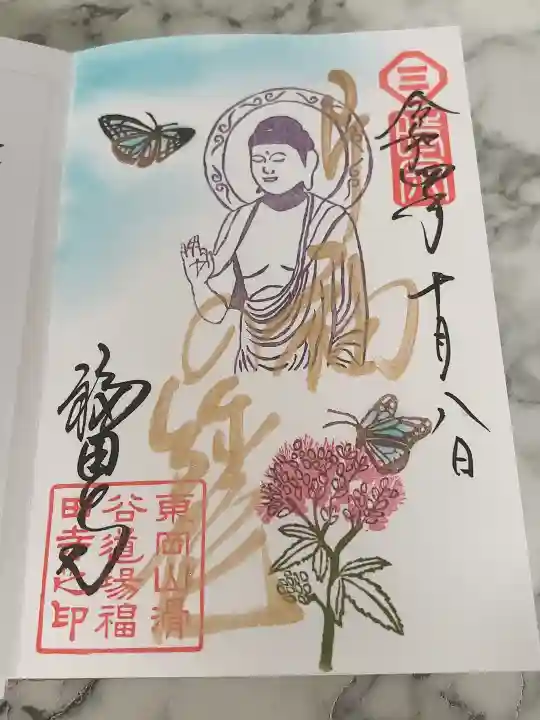 三
令和四年
十月八日
福田寺
東岡山滑
谷道場福
田寺之印